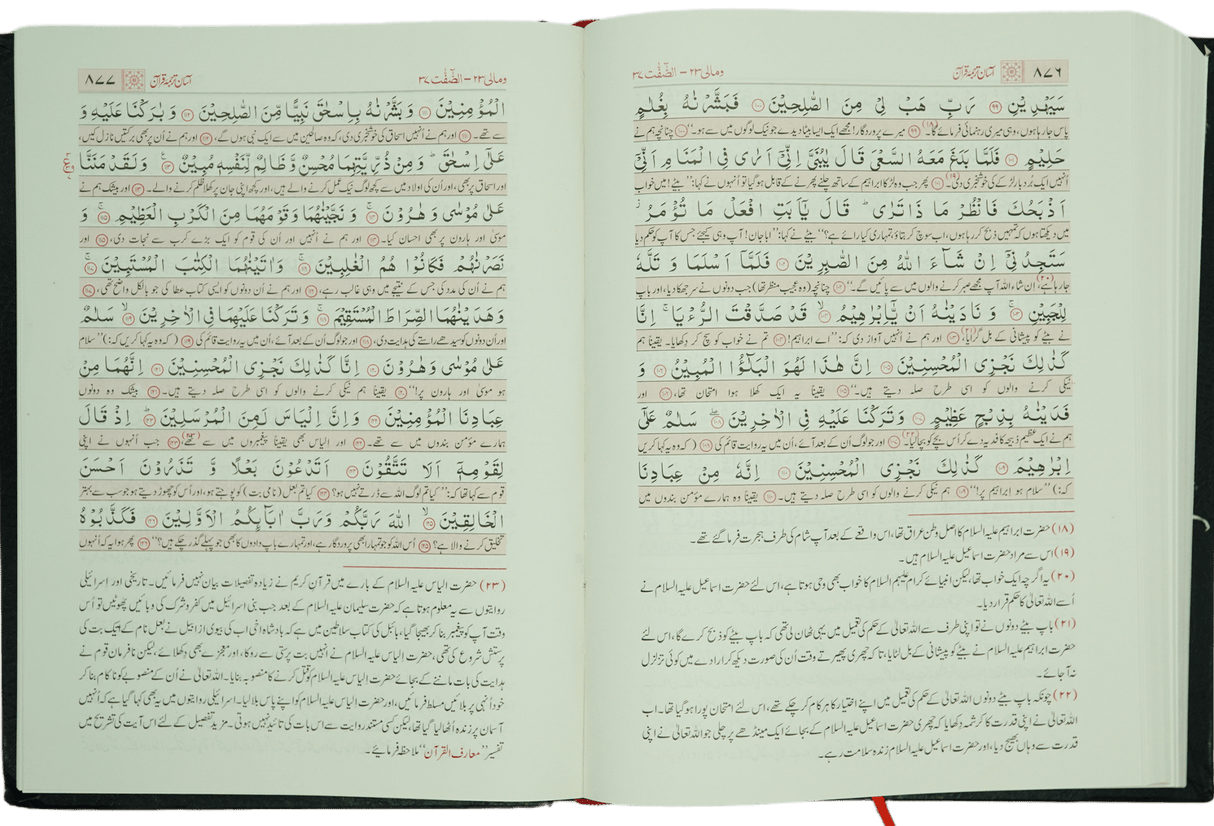 ٨٧٦ آسان ترجمۂ قرآن ومالی ٢٣ - الصّٰٓفّٰت ٣٧
سَيَهْدِيْنِ ﴿٩٩﴾ رَبِّ هَبْ لِيْ مِنَ الصّٰلِحِيْنَ ﴿١٠٠﴾ فَبَشَّرْنٰهُ بِغُلٰمٍ
پاس جارہا ہوں، وہی میری رہنمائی فرمائے گا۔(۱۸) ﴿٩٩﴾ میرے پروردگار! مجھے ایک ایسا بیٹا دیدے جو نیک لوگوں میں سے ہو۔“ ﴿١٠٠﴾ چنانچہ ہم نے
حَلِيْمٍ ﴿١٠١﴾ فَلَمَّا بَلَغَ مَعَهُ السَّعْيَ قَالَ يٰبُنَيَّ اِنِّيْٓ اَرٰى فِي الْمَنَامِ اَنِّيْٓ
انہیں ایک بُردبار لڑکے کی خوشخبری دی۔(۱۹) ﴿١٠١﴾ پھر جب وہ لڑکا ابراہیم کے ساتھ چلنے پھرنے کے قابل ہوگیا تو اُنہوں نے کہا: ”بیٹے! میں خواب
اَذْبَحُكَ فَانْظُرْ مَا ذَا تَرٰى ؕ قَالَ يٰٓاَبَتِ افْعَلْ مَا تُؤْمَرُ ؗ
میں دیکھتا ہوں کہ تمہیں ذبح کر رہا ہوں، اب سوچ کر بتاؤ، تمہاری کیا رائے ہے؟“ بیٹے نے کہا: ”ابا جان! آپ وہی کیجئے جس کا آپ کو حکم دیا
سَتَجِدُنِيْٓ اِنْ شَآءَ اللّٰهُ مِنَ الصّٰبِرِيْنَ ﴿١٠٢﴾ فَلَمَّآ اَسْلَمَا وَ تَلَّهٗ
جارہا ہے،(۲۰) اِن شاء اللہ آپ مجھے صبر کرنے والوں میں سے پائیں گے۔“ ﴿١٠٢﴾ چنانچہ (وہ عجیب منظر تھا) جب دونوں نے سر جھکا دیا، اور باپ
لِلْجَبِيْنِ ﴿١٠٣﴾ وَ نَادَيْنٰهُ اَنْ يّٰٓاِبْرٰهِيْمُ ﴿١٠٤﴾ قَدْ صَدَّقْتَ الرُّءْيَا ۚ اِنَّا
نے بیٹے کو پیشانی کے بل گرایا،(۲۱) ﴿١٠٣﴾ اور ہم نے انہیں آواز دی کہ: ”اے ابراہیم! ﴿١٠٤﴾ تم نے خواب کو سچ کر دِکھایا۔ یقیناً ہم
كَذٰلِكَ نَجْزِي الْمُحْسِنِيْنَ ﴿١٠٥﴾ اِنَّ هٰذَا لَهُوَ الْبَلٰٓؤُا الْمُبِيْنُ ﴿١٠٦﴾ وَ
نیکی کرنے والوں کو اسی طرح صلہ دیتے ہیں۔“ ﴿١٠٥﴾ یقیناً یہ ایک کھلا ہوا امتحان تھا، ﴿١٠٦﴾ اور
فَدَيْنٰهُ بِذِبْحٍ عَظِيْمٍ ﴿١٠٧﴾ وَتَرَكْنَا عَلَيْهِ فِي الْاٰخِرِيْنَ ﴿١٠٨﴾ سَلٰمٌ عَلٰٓى
ہم نے ایک عظیم ذبیحہ کا فدیہ دے کر اُس بچے کو بچالیا۔(۲۲) ﴿١٠٧﴾ اور جو لوگ اُن کے بعد آئے، اُن میں یہ روایت قائم کی ﴿١٠٨﴾ (کہ وہ یہ کہا کریں
اِبْرٰهِيْمَ ﴿١٠٩﴾ كَذٰلِكَ نَجْزِي الْمُحْسِنِيْنَ ﴿١١٠﴾ اِنَّهٗ مِنْ عِبَادِنَا
کہ:) ”سلام ہو ابراہیم پر!“ ﴿١٠٩﴾ ہم نیکی کرنے والوں کو اسی طرح صلہ دیتے ہیں۔ ﴿١١٠﴾ یقیناً وہ ہمارے مؤمن بندوں میں
(۱۸) حضرت ابراہیم علیہ السلام کا اصل وطن عراق تھا، اس واقعے کے بعد آپ شام کی طرف ہجرت فرما گئے تھے۔
(۱۹) اس سے مراد حضرت اسماعیل علیہ السلام ہیں۔
(۲۰) یہ اگرچہ ایک خواب تھا، لیکن انبیائے کرام علیہم السلام کا خواب بھی وحی ہوتا ہے، اس لئے حضرت اسماعیل علیہ السلام نے
اُسے اللہ تعالیٰ کا حکم قرار دیا۔
(۲۱) باپ بیٹے دونوں نے تو اپنی طرف سے اللہ تعالیٰ کے حکم کی تعمیل میں یہی ٹھان لی تھی کہ باپ بیٹے کو ذبح کرے گا، اس لئے
حضرت ابراہیم علیہ السلام نے بیٹے کو پیشانی کے بل لٹایا، تاکہ چھری پھیرتے وقت اُن کی صورت دیکھ کر ارادے میں کوئی تزلزل
نہ آجائے۔
(۲۲) چونکہ باپ بیٹے دونوں اللہ تعالیٰ کے حکم کی تعمیل میں اپنے اختیار کا ہر کام کر چکے تھے، اس لئے امتحان پورا ہو گیا تھا۔ اب
اللہ تعالیٰ نے اپنی قدرت کا کرشمہ دِکھایا کہ چھری حضرت اسماعیل علیہ السلام کے بجائے ایک مینڈھے پر چلی جو اللہ تعالیٰ نے اپنی
قدرت سے وہاں بھیج دیا، اور حضرت اسماعیل علیہ السلام زندہ سلامت رہے۔
ومالی ٢٣ - الصّٰٓفّٰت ٣٧ آسان ترجمۂ قرآن ٨٧٧
الْمُؤْمِنِيْنَ ﴿١١١﴾ وَ بَشَّرْنٰهُ بِاِسْحٰقَ نَبِيًّا مِّنَ الصّٰلِحِيْنَ ﴿١١٢﴾ وَ بٰرَكْنَا عَلَيْهِ وَ
سے تھے۔ ﴿١١١﴾ اور ہم نے انہیں اسحاق کی خوشخبری دی، کہ وہ صالحین میں سے ایک نبی ہوں گے، ﴿١١٢﴾ اور ہم نے اُن پر بھی برکتیں نازل کیں،
عَلٰٓى اِسْحٰقَ ؕ وَ مِنْ ذُرِّيَّتِهِمَا مُحْسِنٌ وَّ ظَالِمٌ لِّنَفْسِهٖ مُبِيْنٌ ﴿١١٣﴾ وَ لَقَدْ مَنَنَّا
اور اسحاق پر بھی، اور اُن کی اولاد میں سے کچھ لوگ نیک عمل کرنے والے ہیں، اور کچھ اپنی جان پر کھلا ظلم کرنے والے۔ ﴿١١٣﴾ اور بیشک ہم نے
عَلٰى مُوْسٰى وَ هٰرُوْنَ ﴿١١٤﴾ وَ نَجَّيْنٰهُمَا وَ قَوْمَهُمَا مِنَ الْكَرْبِ الْعَظِيْمِ ﴿١١٥﴾ وَ
موسیٰ اور ہارون پر بھی احسان کیا۔ ﴿١١٤﴾ اور ہم نے انہیں اور اُن کی قوم کو ایک بڑے کرب سے نجات دی، ﴿١١٥﴾ اور
نَصَرْنٰهُمْ فَكَانُوْا هُمُ الْغٰلِبِيْنَ ﴿١١٦﴾ وَ اٰتَيْنٰهُمَا الْكِتٰبَ الْمُسْتَبِيْنَ ﴿١١٧﴾
ہم نے اُن کی مدد کی جس کے نتیجے میں وہی غالب رہے، ﴿١١٦﴾ اور ہم نے اُن دونوں کو ایسی کتاب عطا کی جو بالکل واضح تھی، ﴿١١٧﴾
وَ هَدَيْنٰهُمَا الصِّرَاطَ الْمُسْتَقِيْمَ ﴿١١٨﴾ وَ تَرَكْنَا عَلَيْهِمَا فِي الْاٰخِرِيْنَ ﴿١١٩﴾ سَلٰمٌ
اور اُن دونوں کو سیدھے راستے کی ہدایت دی، ﴿١١٨﴾ اور جو لوگ اُن کے بعد آئے، اُن میں یہ روایت قائم کی ﴿١١٩﴾ (کہ وہ یہ کہا کریں کہ:) ”سلام
عَلٰى مُوْسٰى وَ هٰرُوْنَ ﴿١٢٠﴾ اِنَّا كَذٰلِكَ نَجْزِي الْمُحْسِنِيْنَ ﴿١٢١﴾ اِنَّهُمَا مِنْ
ہو موسیٰ اور ہارون پر!“ ﴿١٢٠﴾ یقیناً ہم نیکی کرنے والوں کو اسی طرح صلہ دیتے ہیں۔ ﴿١٢١﴾ بیشک وہ دونوں
عِبَادِنَا الْمُؤْمِنِيْنَ ﴿١٢٢﴾ وَ اِنَّ اِلْيَاسَ لَمِنَ الْمُرْسَلِيْنَ ﴿١٢٣﴾ اِذْ قَالَ
ہمارے مؤمن بندوں میں سے تھے۔ ﴿١٢٢﴾ اور الیاس بھی یقیناً پیغمبروں میں سے تھے،(۲۳) ﴿١٢٣﴾ جب اُنہوں نے اپنی
لِقَوْمِهٖٓ اَلَا تَتَّقُوْنَ ﴿١٢٤﴾ اَتَدْعُوْنَ بَعْلًا وَّ تَذَرُوْنَ اَحْسَنَ
قوم سے کہا تھا کہ: ”کیا تم لوگ اللہ سے ڈرتے نہیں ہو؟ ﴿١٢٤﴾ کیا تم بعل (نامی بت) کو پوجتے ہو، اور اُس کو چھوڑ دیتے ہو جو سب سے بہتر
الْخَالِقِيْنَ ﴿١٢٥﴾ اللّٰهَ رَبَّكُمْ وَ رَبَّ اٰبَآئِكُمُ الْاَوَّلِيْنَ ﴿١٢٦﴾ فَكَذَّبُوْهُ
تخلیق کرنے والا ہے؟ ﴿١٢٥﴾ اُس اللہ کو جو تمہارا بھی پروردگار ہے، اور تمہارے باپ دادوں کا بھی جو پہلے گذر چکے ہیں؟“ ﴿١٢٦﴾ پھر ہوا یہ کہ اُنہوں
(۲۳) حضرت الیاس علیہ السلام کے بارے میں قرآنِ کریم نے زیادہ تفصیلات بیان نہیں فرمائیں۔ تاریخی اور اسرائیلی
روایتوں سے یہ معلوم ہوتا ہے کہ حضرت سلیمان علیہ السلام کے بعد جب بنی اسرائیل میں کفر و شرک کی وبائیں پھوٹیں تو اُس
وقت آپ کو پیغمبر بنا کر بھیجا گیا، بائبل کی کتاب سلاطین میں ہے کہ بادشاہ اخی اب کی بیوی ازابیل نے بعل نام کے ایک بت کی
پرستش شروع کی تھی، حضرت الیاس علیہ السلام نے انہیں بت پرستی سے روکا، اور معجزے بھی دِکھلائے، لیکن نافرمان قوم نے
ہدایت کی بات ماننے کے بجائے حضرت الیاس علیہ السلام کو قتل کرنے کا منصوبہ بنایا۔ اللہ تعالیٰ نے اُن کے منصوبے کو ناکام بنا کر
خود اُنہی پر بلائیں مسلط فرمائیں، اور حضرت الیاس علیہ السلام کو اپنے پاس بلا لیا۔ اسرائیلی روایتوں میں یہ بھی کہا گیا ہے کہ اُنہیں
آسمان پر زندہ اُٹھا لیا گیا تھا، لیکن کسی مستند روایت سے اس بات کی تائید نہیں ہوتی۔ مزید تفصیل کے لئے اس آیت کی تشریح میں
تفسیر ”معارف القرآن“ ملاحظہ فرمائیے۔